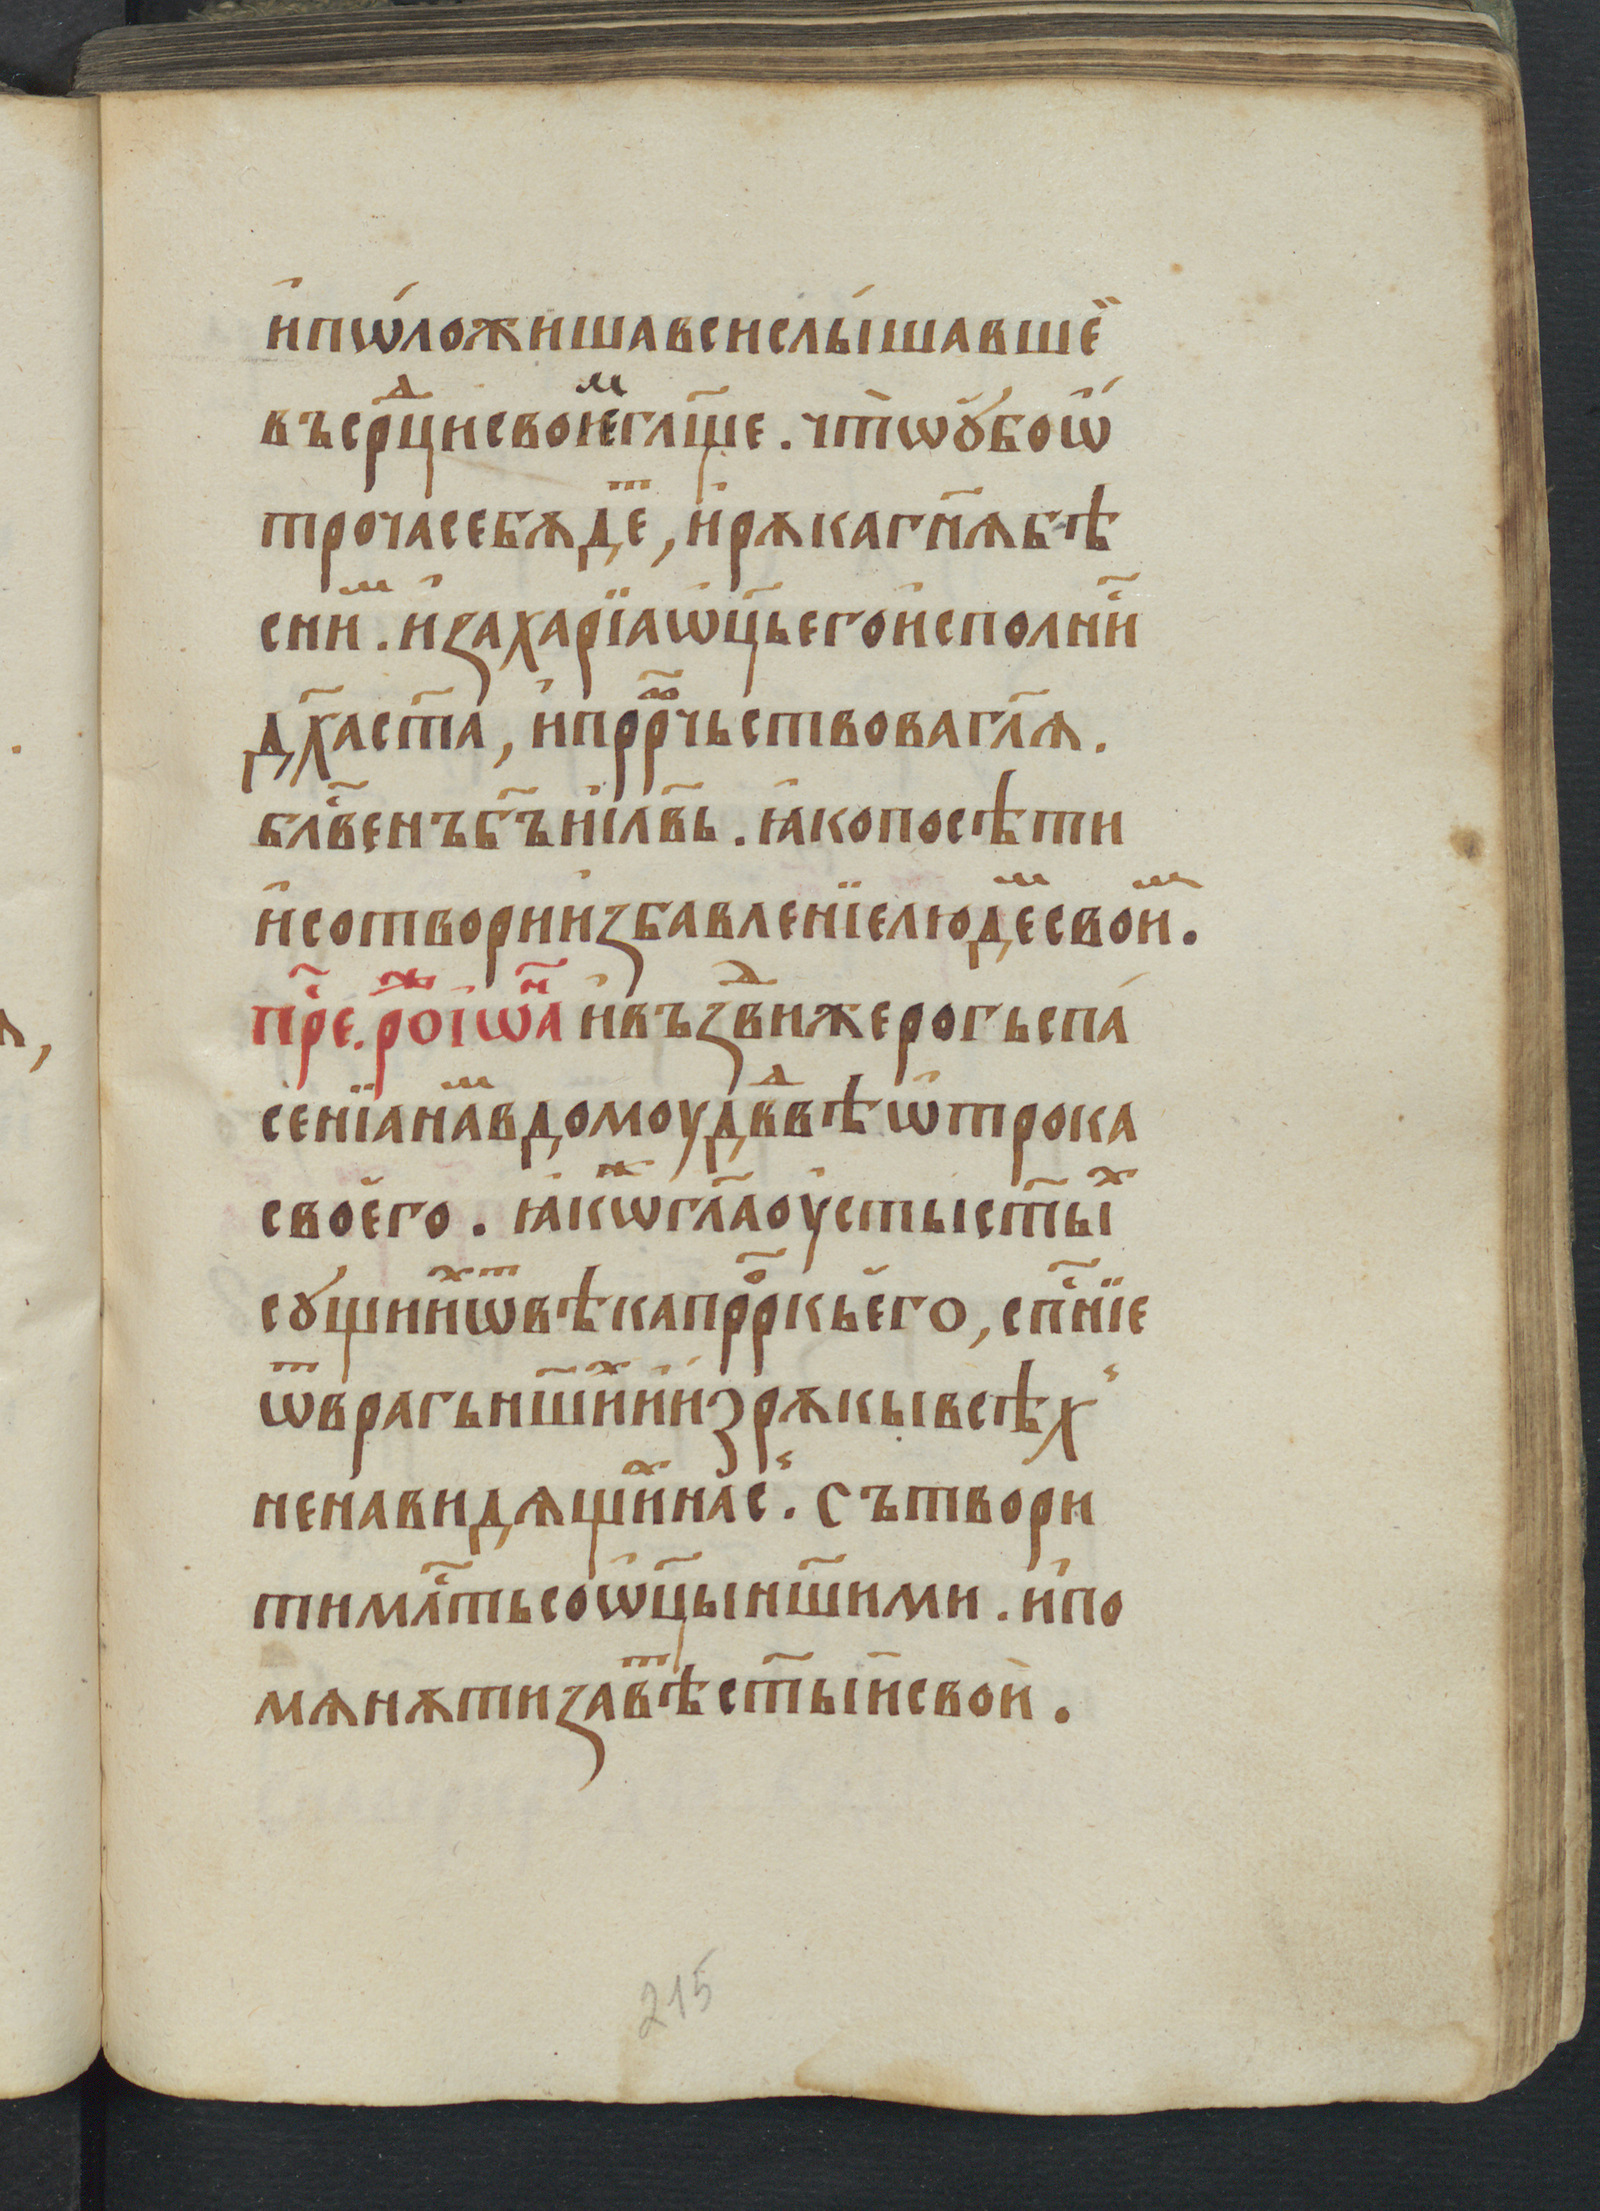 и҆пѡ́ложишавсислы́шавшеѐ
въсрⷣ҇цисвоиⷨ҇еглщ҃е. чтѡ̀ꙋ҆́боѡ҆́
трочасебѫдеⷮ, и҆рѫкагн҃ѧбѣ
снииⷨ. и҆захарїаѡ҆ц҃ьегои҆сполниⷭ҇
дх҃аст҃а, и҆прⷪ҇рⷪ҇чьствовагл҃ѧ.
блвⷭ҇енъбг҃ъиі҆лв҃ь. ꙗ҆копосѣти
и҆сотвории҆збавленїелюдеⷨсвоиⷨ.
прⷣе. рⷤоі҆ѡⷩ҇а и҆възⷣвижерогьспа́
сенїанаⷨвдомоудⷣввѣѡ҆трока
своѐго. ꙗ҆коⷤѡгл҃аоу҆стыст҃ыⷯ
сꙋ́щииⷯѿвѣкапрⷪ҇ркьѐго, спⷭ҇нїе
ѿврагьнш҃иⷯии҆зрѫкывсѣх
ненавидѧщиⷯнас. Сътвори
тимлⷭ҇тьсоѡ҆ц҃ынш҃ими. и҆по
мѧнѫтизавѣⷮст҃ыисвои.
215